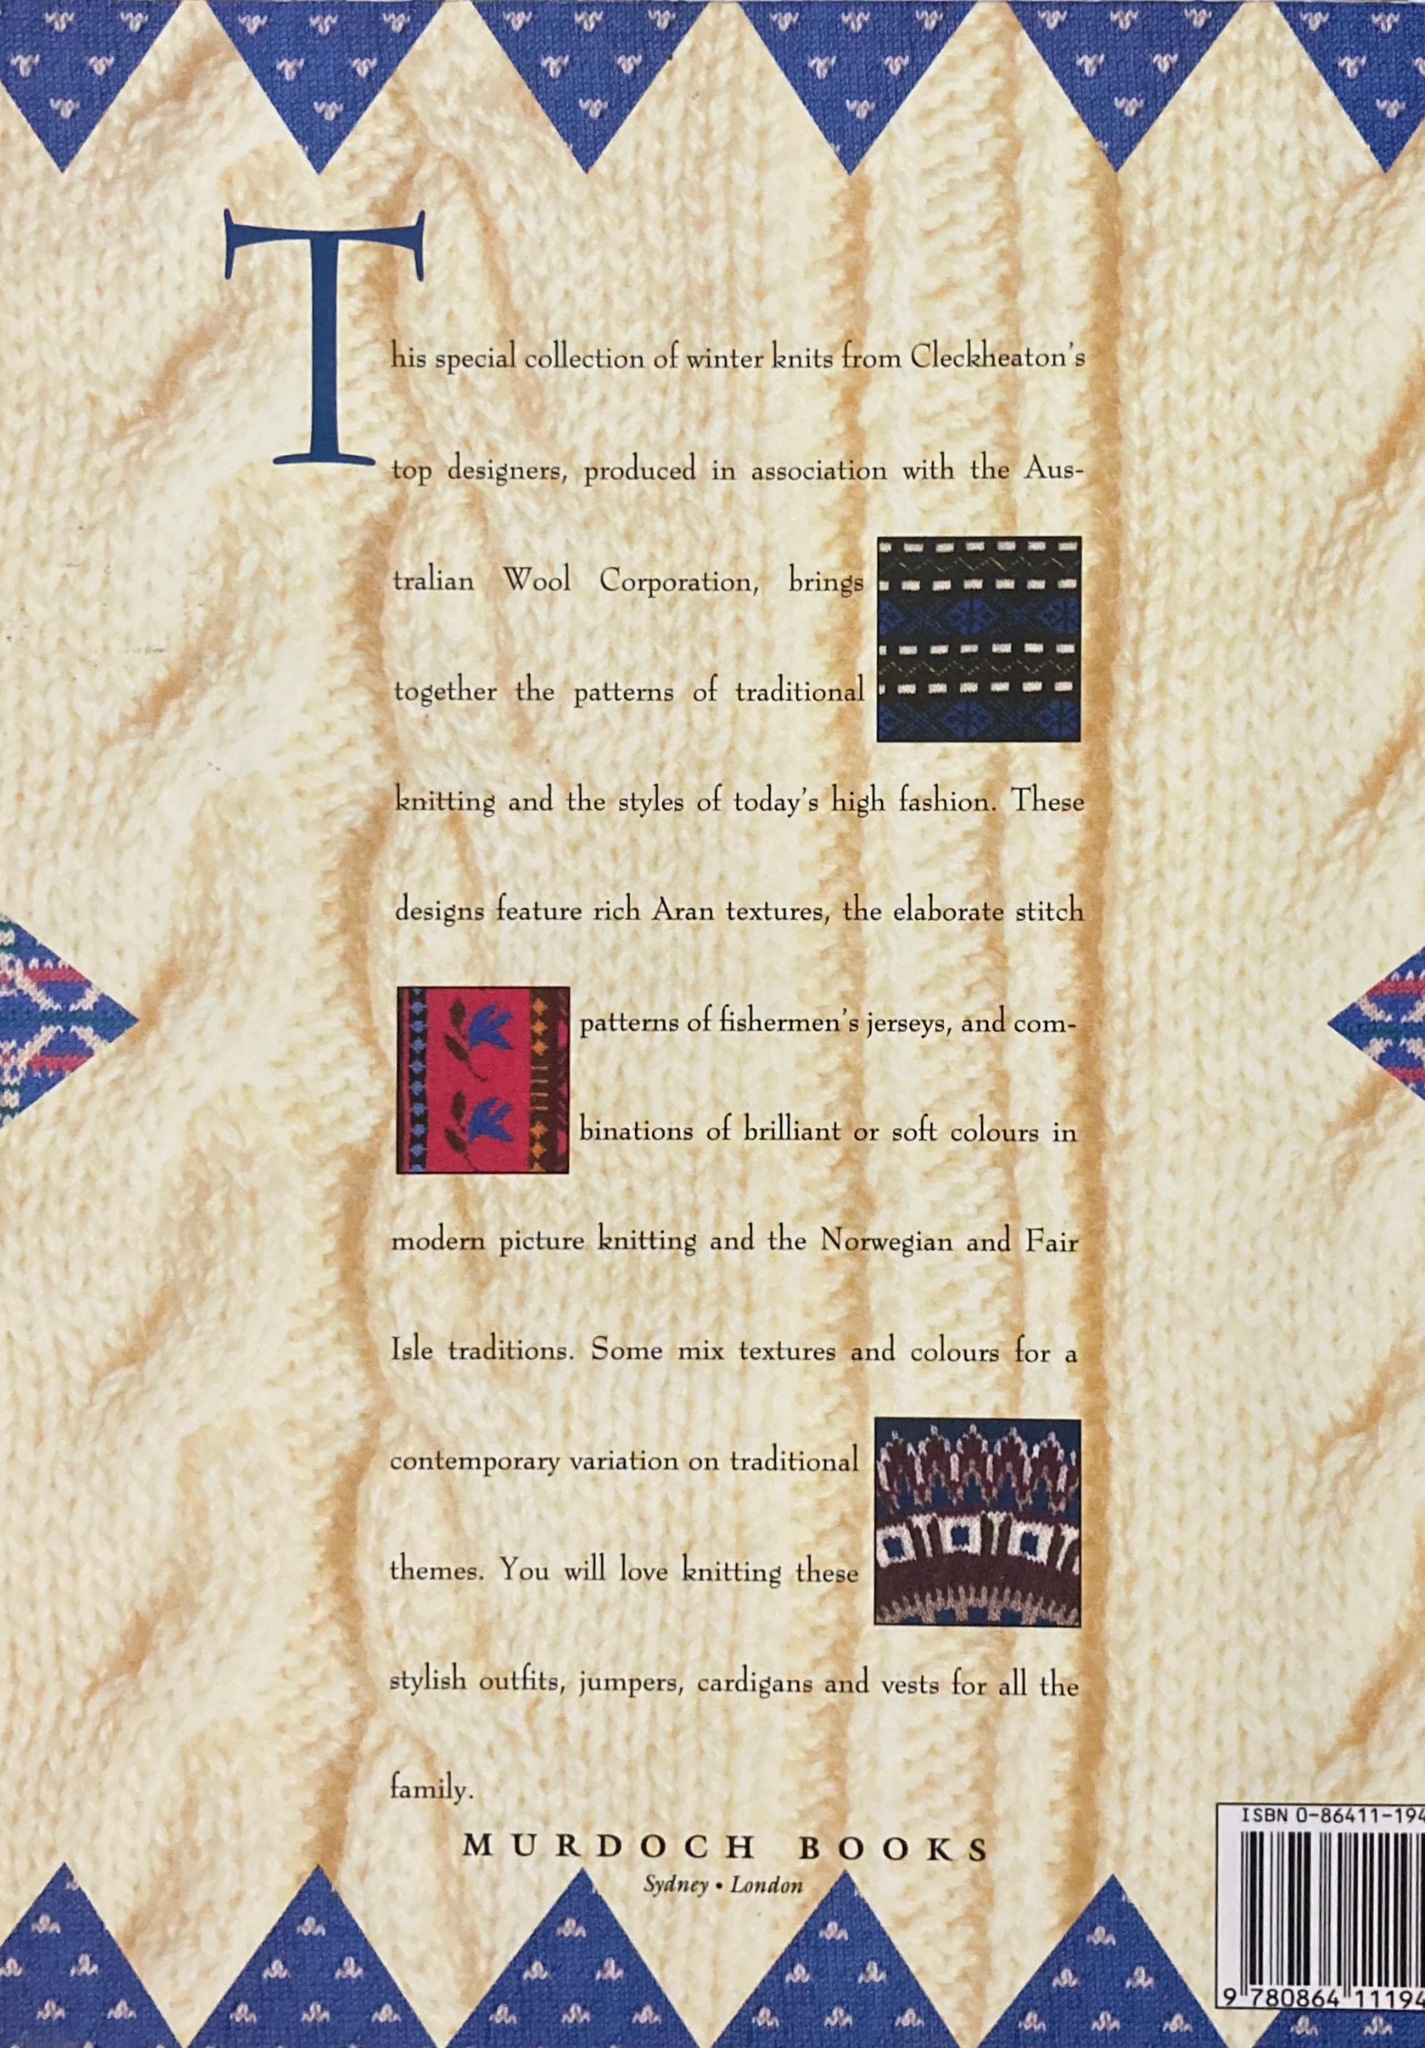 This special collection of winter knits from Cleckheaton's
top designers, produced in association with the Aus-
tralian Wool Corporation, brings
together the patterns of traditional
knitting and the styles of today's high fashion. These
designs feature rich Aran textures, the elaborate stitch
patterns of fishermen's jerseys, and com-
binations of brilliant or soft colours in
modern picture knitting and the Norwegian and Fair
Isle traditions. Some mix textures and colours for a
contemporary variation on traditional
themes. You will love knitting these
stylish outfits, jumpers, cardigans and vests for all the
family.
MURDOCH BOOKS
Sydney • London
ISBN 0-86411-194
9 780864 11194